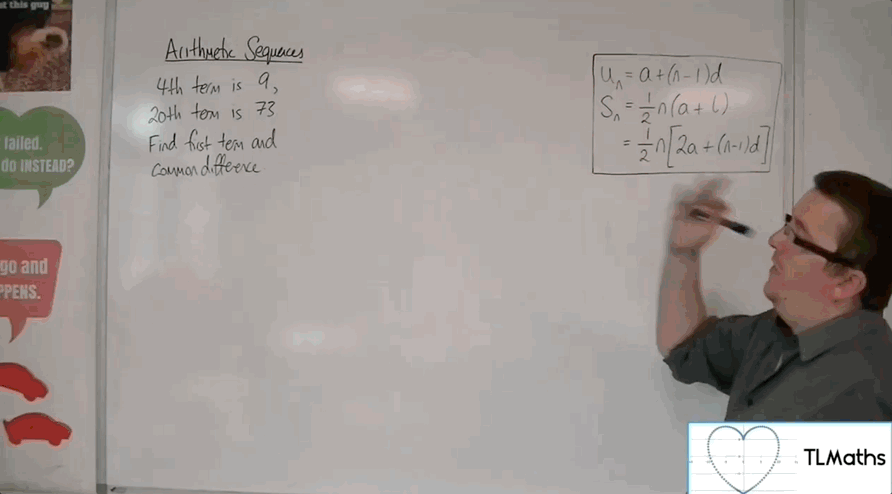 t this guy
failed.
do INSTEAD?
go and
PPENS.
Arithmetic Sequences
4th term is 9,
20th term is 73
Find first term and
common difference
Uₙ = a + (n-1)d
Sₙ = 1/2 n(a + L)
= 1/2 n[2a + (n-1)d]
TLMaths